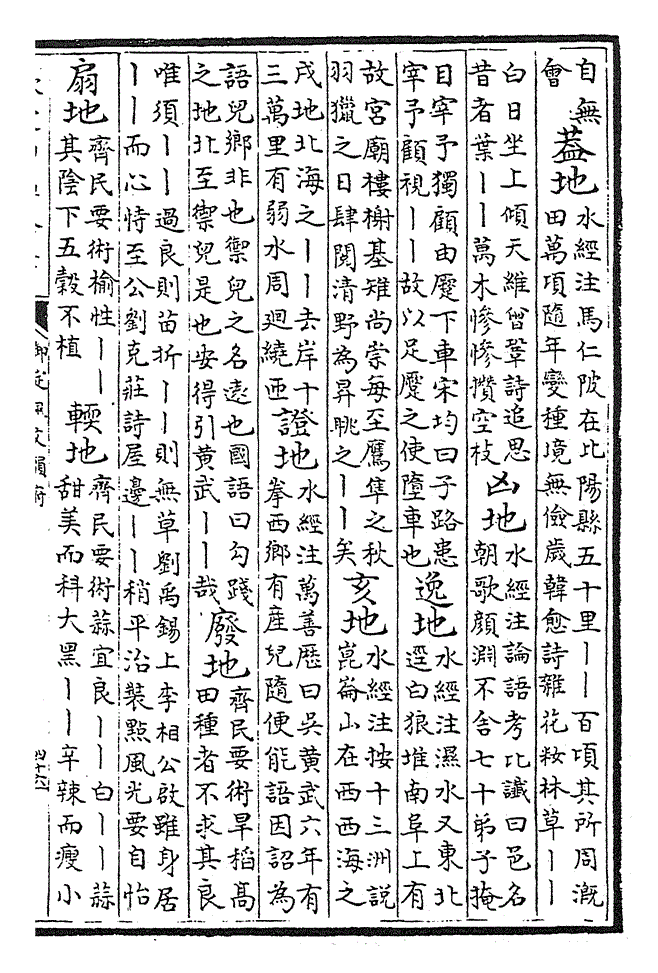 自無
會
葢地
水經注馬仁陂在比陽縣五十里丨丨百頃其所周漑
田萬頃隨年變種境無儉歲韓愈詩雜花糚林草丨丨
白日坐上傾天維曾鞏詩追思
昔者葉丨丨萬木慘慘攢空枝
凶地
水經注論語考比讖曰邑名
朝歌顔淵不舍七十弟子掩
目宰予獨顧由蹙下車宋均曰子路患
宰予顧視丨丨故以足蹙之使墮車也
逸地
水經注濕水又東北
逕白狼堆南阜上有
故宮廟樓榭基雉尚崇每至鷹隼之秋
羽獵之日肆閱清野為昇眺之丨丨矣
亥地
水經注按十三洲說
崑崙山在西西海之
戌地北海之丨丨去岸十
三萬里有弱水周迴繞匝
證地
水經注萬善歷曰吳黄武六年有
拳西鄉有産兒隨便能語因詔為
語兒鄉非也禦兒之名遠也國語曰勾踐
之地北至禦兒是也安得引黄武丨丨哉
廢地
齊民要術旱稻髙
田種者不求其良
唯須丨丨過良則苗折丨丨則無草劉禹錫上李相公啟雖身居
丨丨而心恃至公劉克莊詩屋邊丨丨稍平治裝點風光要自怡
扇地
齊民要術榆性丨丨
其陰下五穀不植
輭地
齊民要術蒜宜良丨丨白丨丨蒜
甜美而科大黑丨丨辛辣而瘦小
御定佩文韻府
四十六